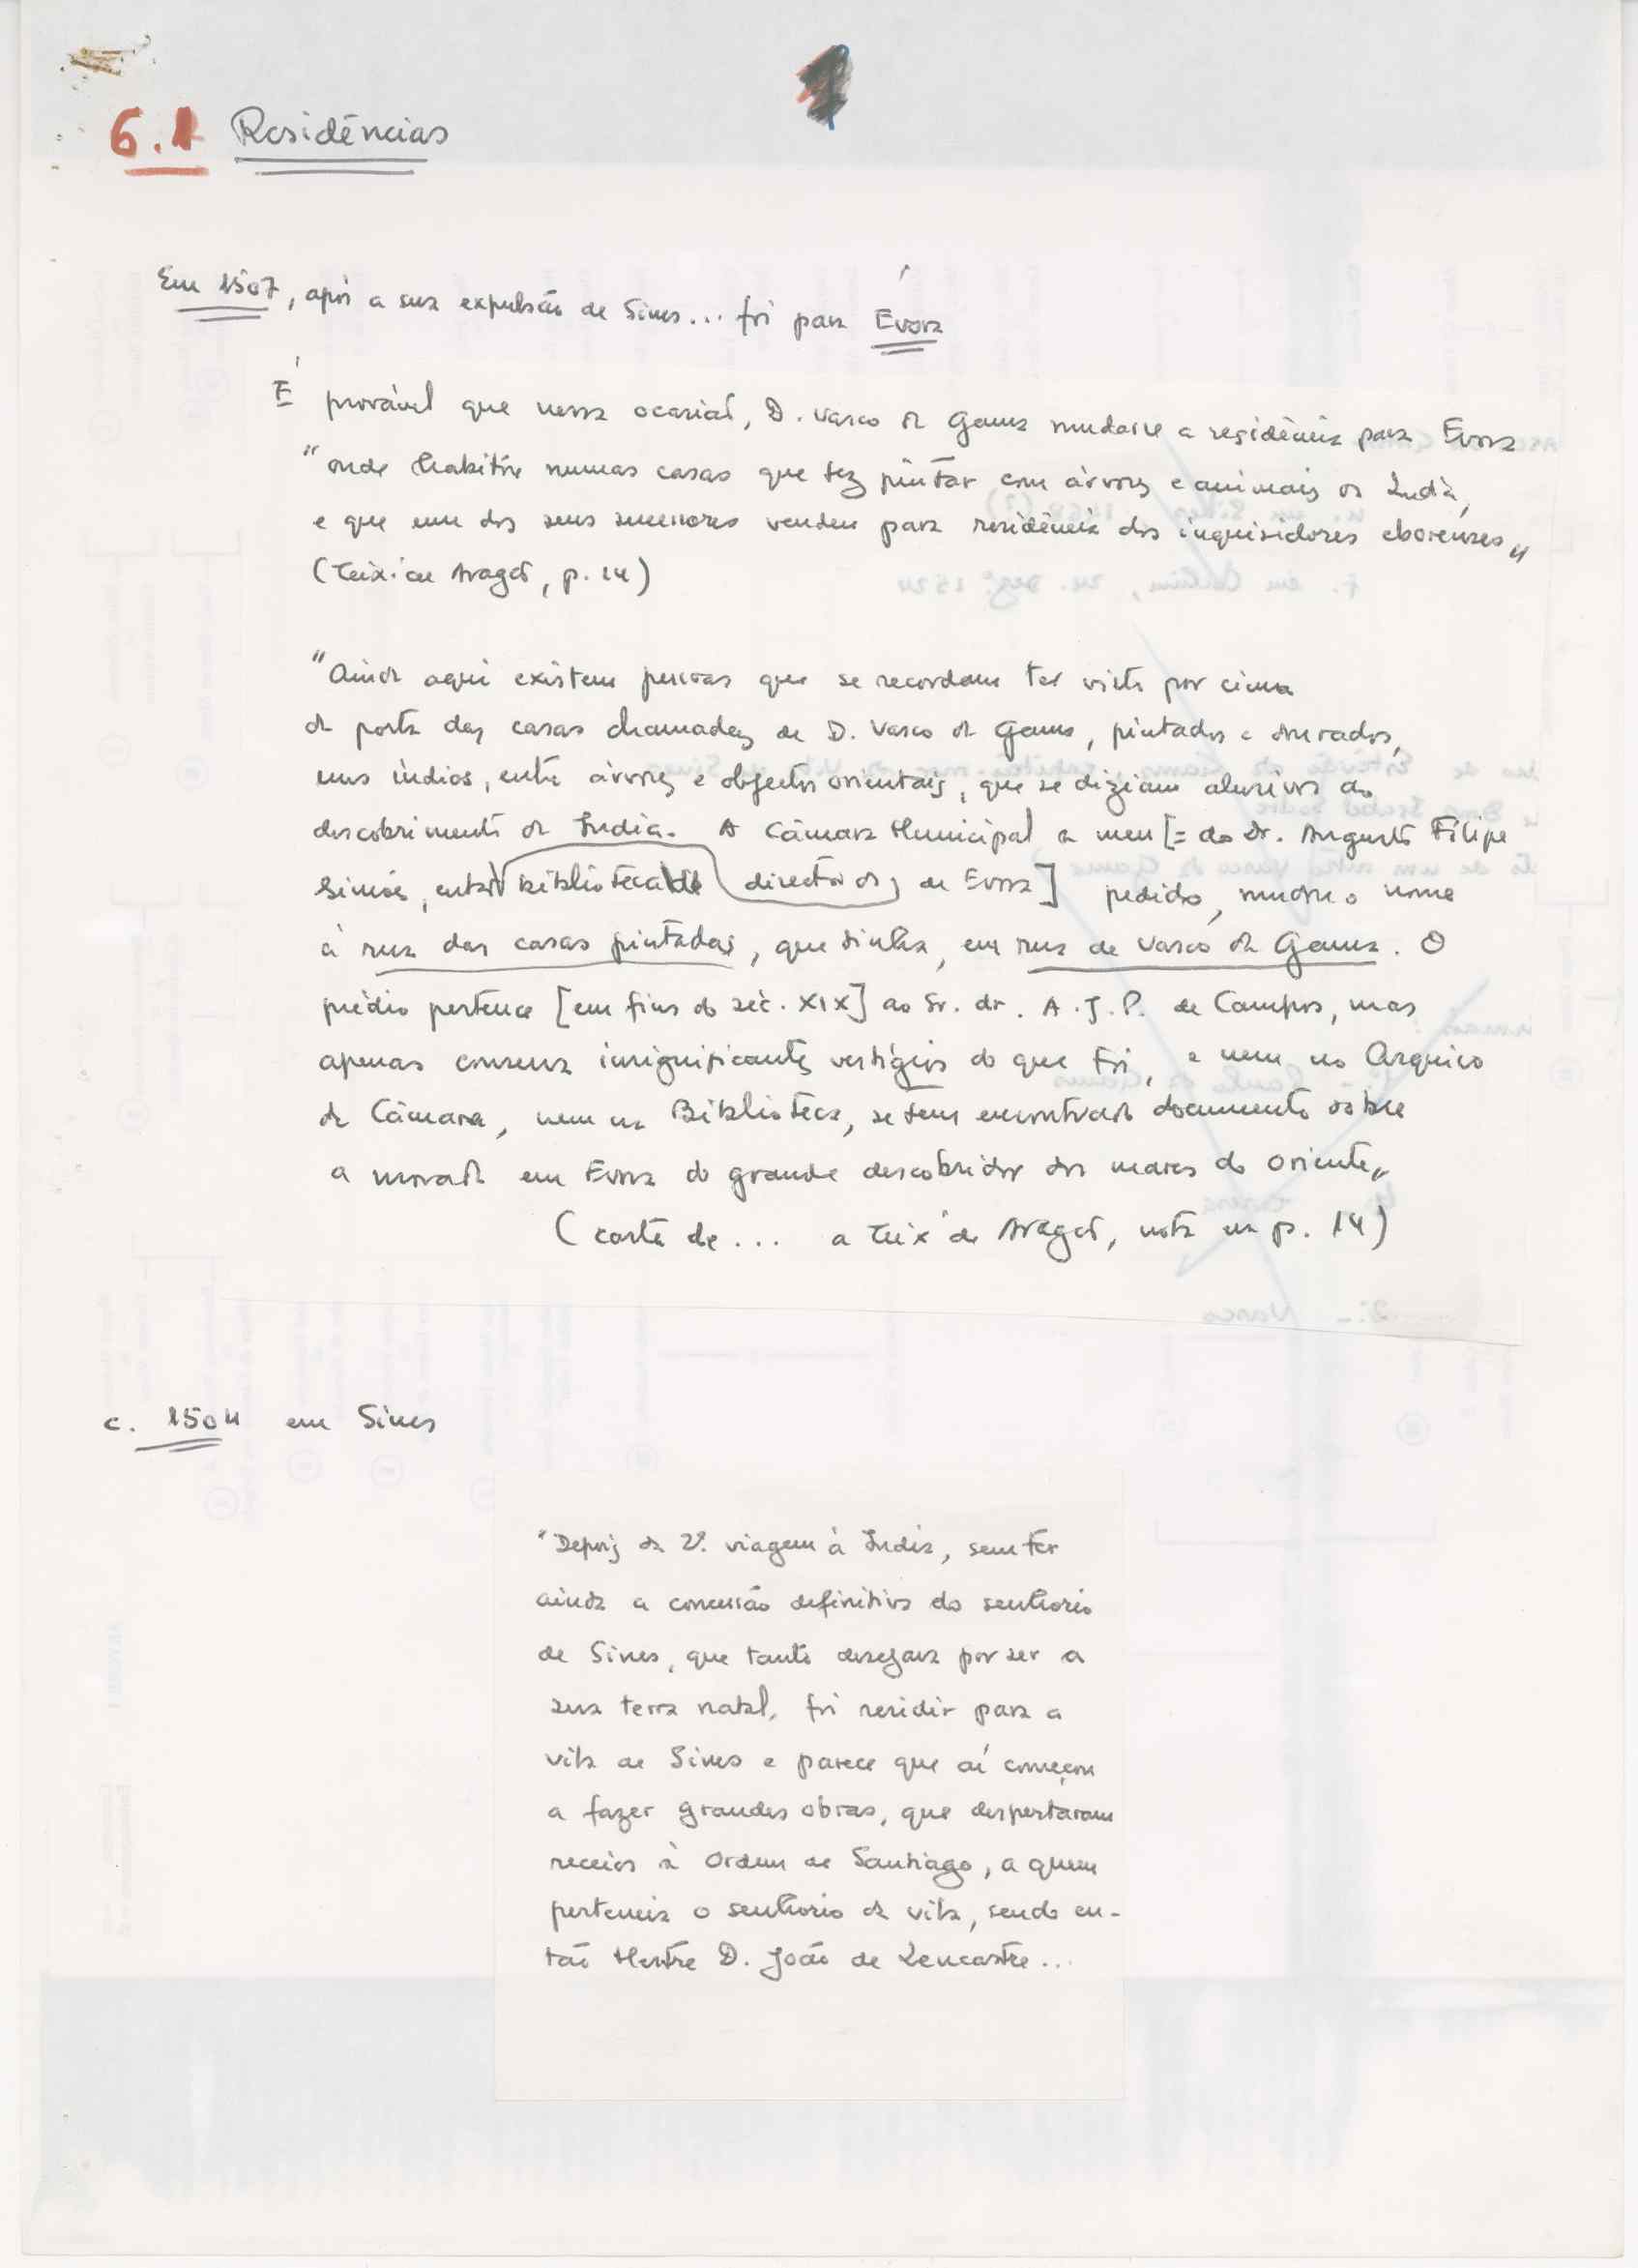 6.1 Residências
Em 1507, após a sua expulsão de Sines... foi para Évora
É provável que nessa ocasião, D. Vasco da Gama mudasse a residência para Evora
"onde habitou numas casas que fez pintar com árvores e animais da India,
e que um dos seus sucessores vendeu para residência dos inquisidores eborenses"
(Teixeira Aragão, p. 14)
"Ainda aqui existem pessoas que se recordam ter visto por cima
da porta das casas chamadas de D. Vasco da Gama, pintados e dourados,
uns índios, entre árvores e objectos orientais, que se diziam alusivos ao
descobrimento da India. A Câmara Municipal a meu [= do Dr. Augusto Filipe
Simões, então director da biblioteca de Evora] pedido, mudou o nome
à rua das casas pintadas, que tinha, em rua de Vasco da Gama. O
prédio pertence [em fins do séc. XIX] ao Sr. dr. A. J. P. de Campos, mas
apenas conserva insignificantes vestígios do que foi, e nem no Arquivo
da Câmara, nem na Biblioteca, se tem encontrado documento sobre
a morada em Evora do grande descobridor dos mares do Oriente"
(carta de... a Teixª de Aragão, nota na p. 14)
c. 1504 em Sines
"Depois da 2ª. viagem à India, sem ter
ainda a concessão definitiva do senhorio
de Sines, que tanto desejava por ser a
sua terra natal, foi residir para a
vila de Sines e parece que aí começou
a fazer grandes obras, que despertaram
receios à Ordem de Santiago, a quem
pertencia o senhorio da vila, sendo en-
tão Mestre D. João de Lencastre...